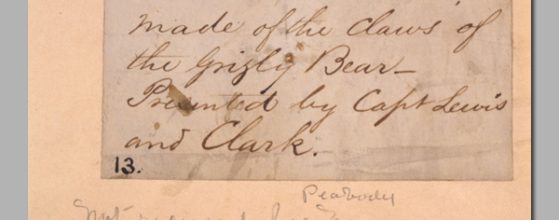 made of the claws of
the Grizly Bear—
Presented by Capt Lewis
and Clark.
13.
Peabody